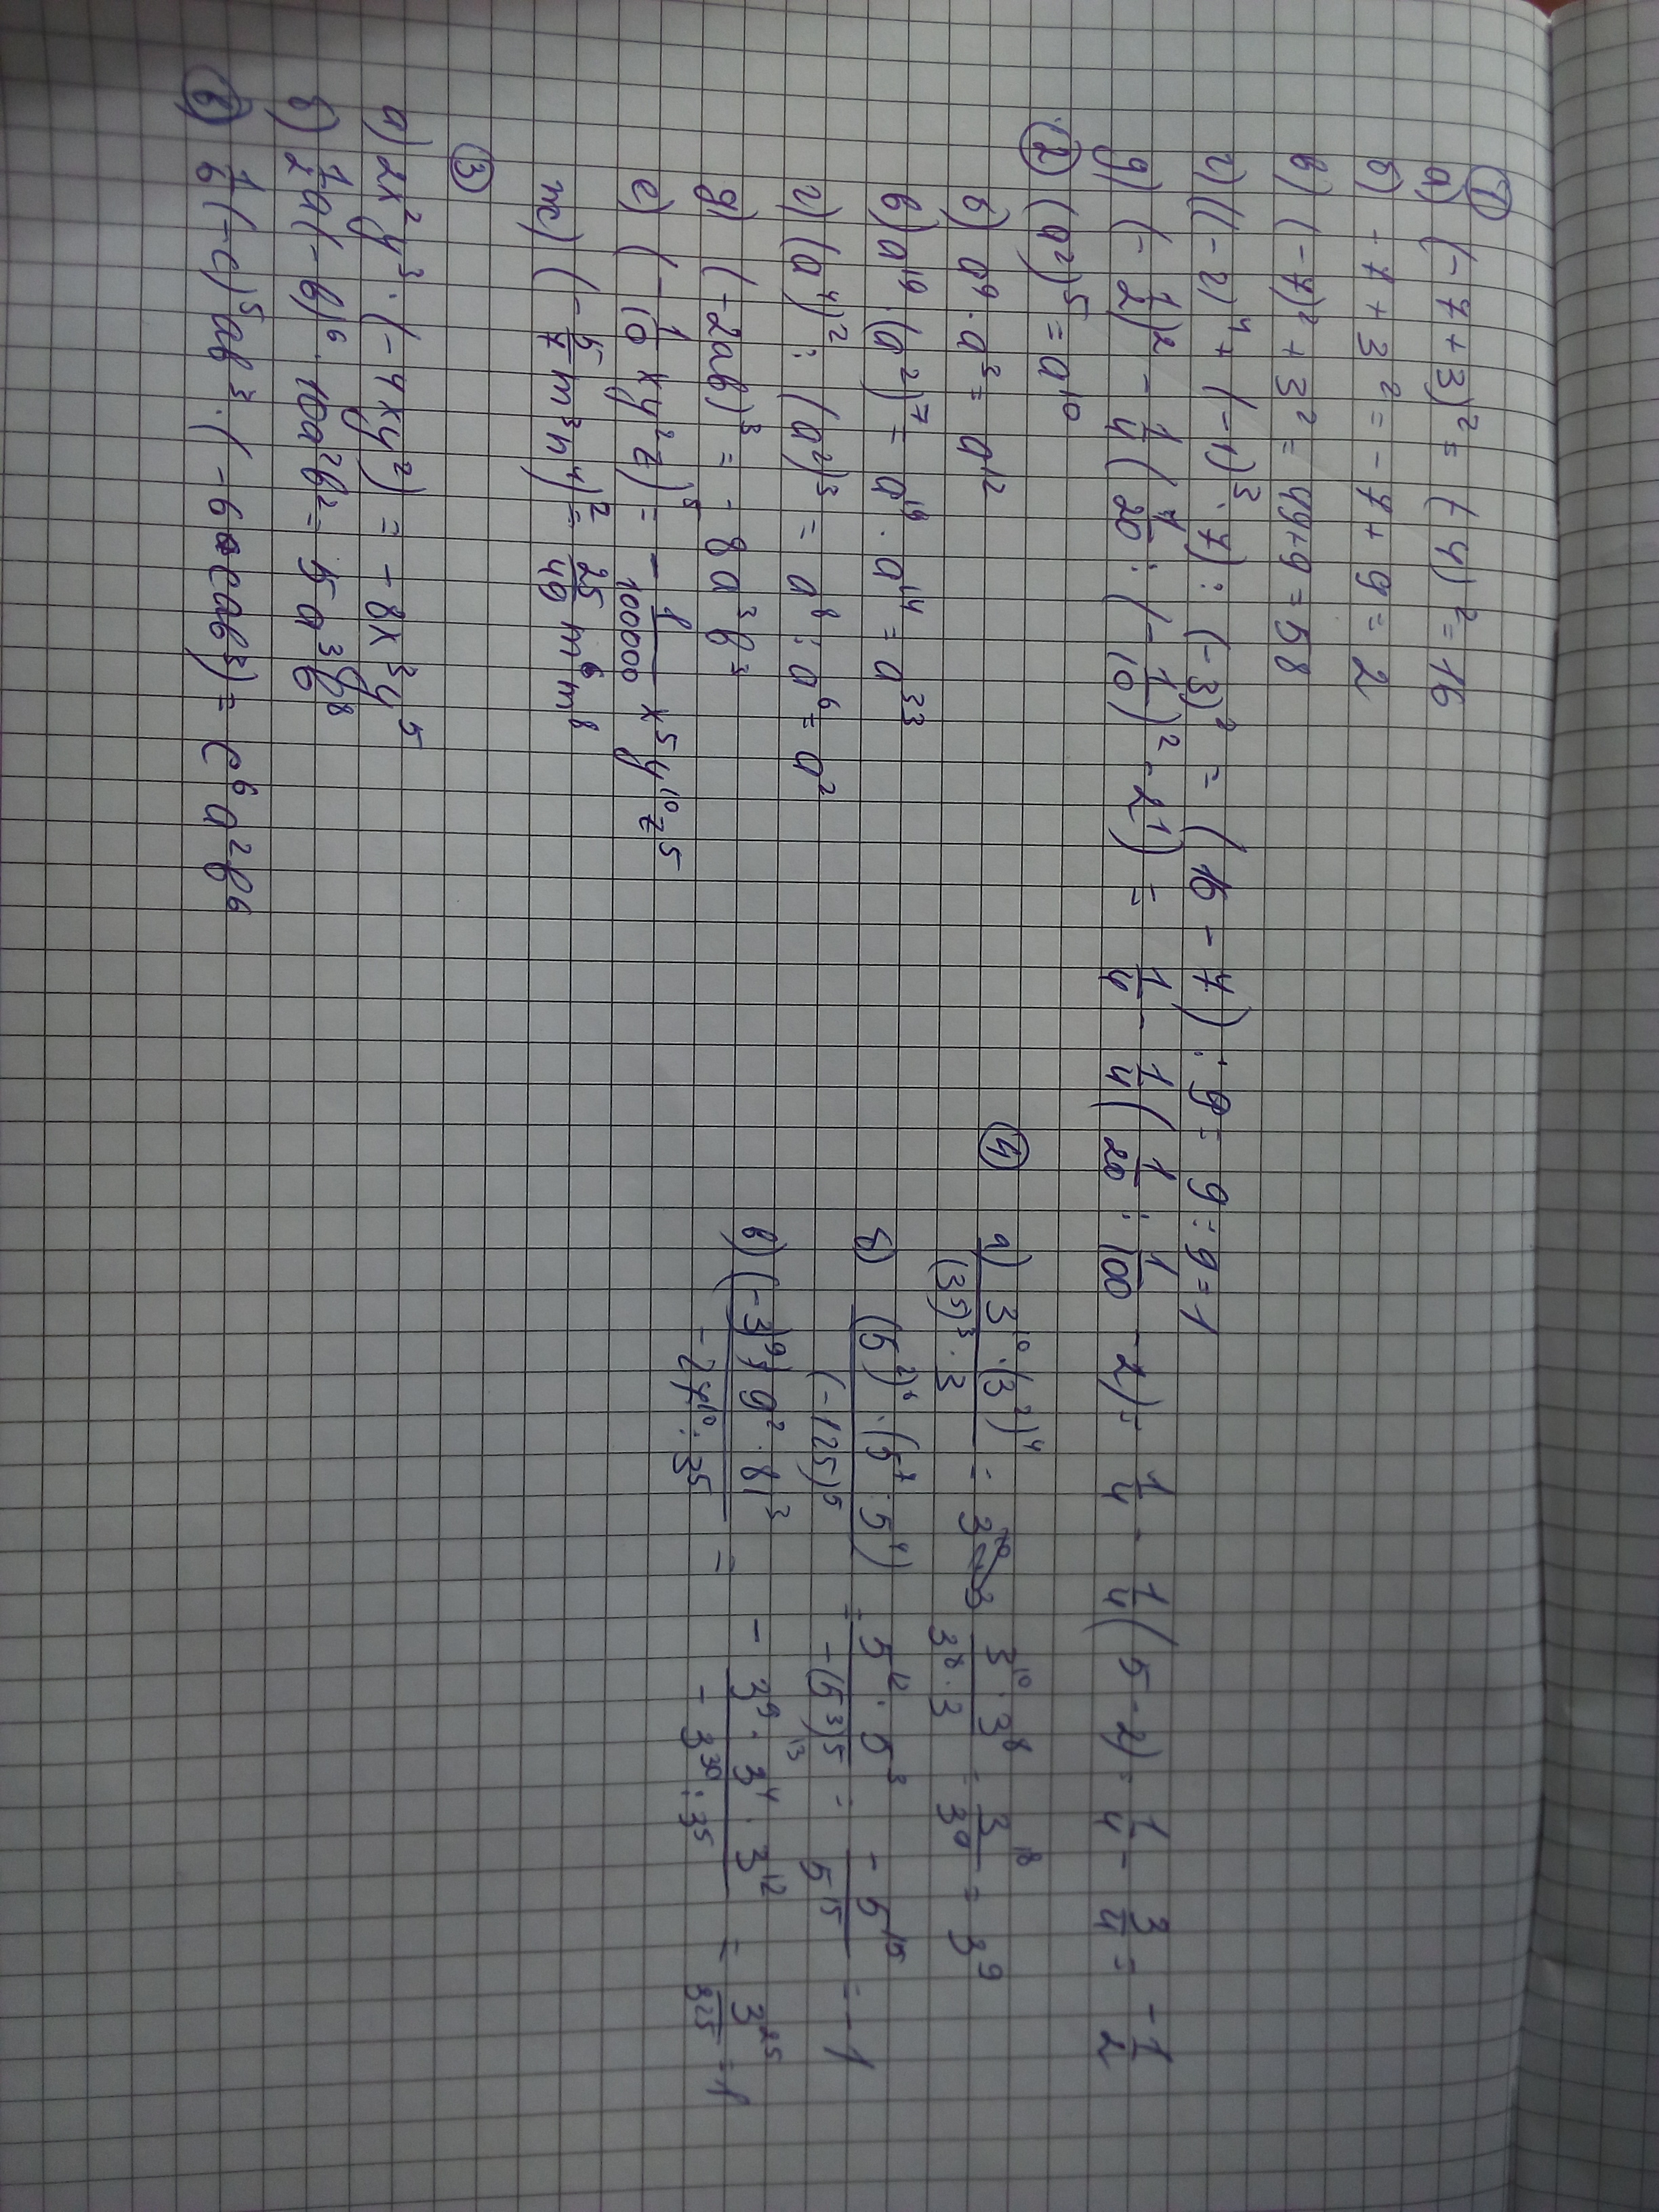 ①
а) (-7+3)² = (-4)² = 16
б) -7+3² = -7+9 = 2
в) (-7)²+3² = 49+9 = 58
г) ((-2)⁴+(-1)³·7):(-3)² = (16-7):9 = 9:9 = 1
д) (-1/2)² - 1/4(1/20:(-1/10)²-2¹) = 1/4 - 1/4(1/20:1/100-2) = 1/4 - 1/4(5-2) = 1/4 - 3/4 = -1/2
② (a²)⁵ = a¹⁰
б) a⁹·a³ = a¹²
в) a¹⁹·(a²)⁷ = a¹⁹·a¹⁴ = a³³
г) (a⁴)²:(a²)³ = a⁸:a⁶ = a²
д) (-2ab)³ = -8a³b³
е) (-1/10xy²z)⁵ = -1/100000x⁵y¹⁰z⁵
ж) (-5/7m³n⁴)² = 25/49m⁶m⁸
③
а) 2x²y³·(-4xy²) = -8x³y⁵
б) 1/2a(-b)⁶·10a²b² = 5a³b⁸
в) 1/6(-c)⁵ab³·(-6cab³) = c⁶a²b⁶
④
а) 3¹⁰·(3²)⁴/(3⁵)³·3 = 3¹⁰·3⁸/3⁸·3 = 3¹⁸/3⁹ = 3⁹
б) (5²)⁶·(5⁷:5⁴)/(-125)⁵ = 5¹²·5³/-(5³)⁵ = -5¹⁵/5¹⁵ = -1
в) (-3)⁹·9²·81³/-27¹⁰:3⁵ = -3⁹·3⁴·3¹²/-3³⁰:3⁵ = 3²⁵/3²⁵ = 1